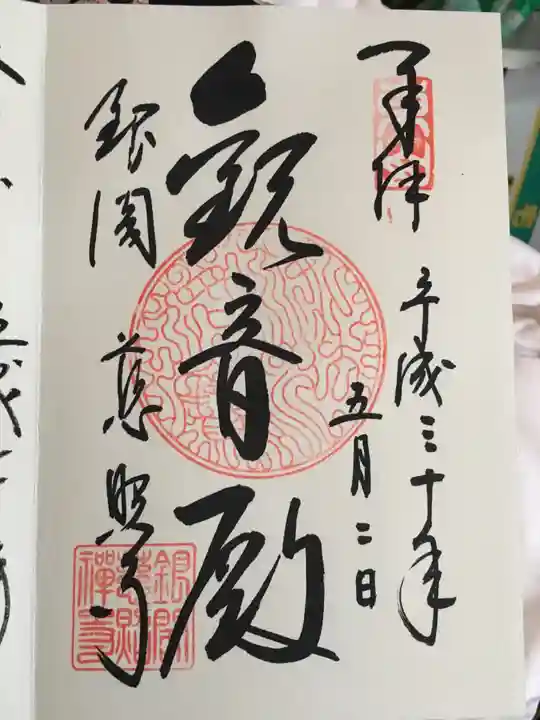 奉拝
平成三十年
五月二日
観音殿
銀閣 慈照寺
銀閣
慈照
禅寺